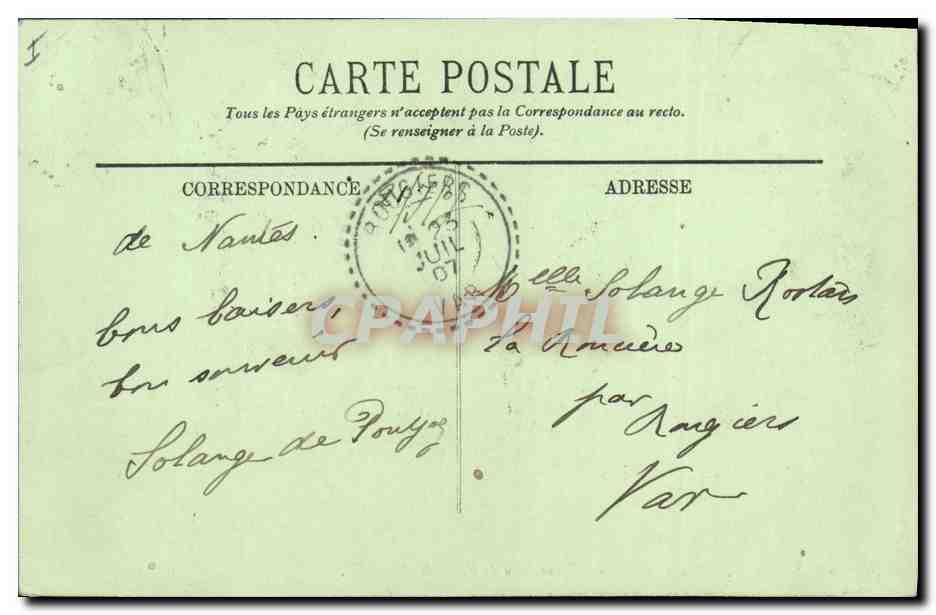 I
CARTE POSTALE
Tous les Pays étrangers n'acceptent pas la Correspondance au recto.
(Se renseigner à la Poste).
CORRESPONDANCE
ADRESSE
ROUGIERS
23
JUIL
07
VAR
de Nantes.
bons baisers,
bon souvenir
Solange de
Melle Solange
la
par
Rougiers
Var
CPAPHIL